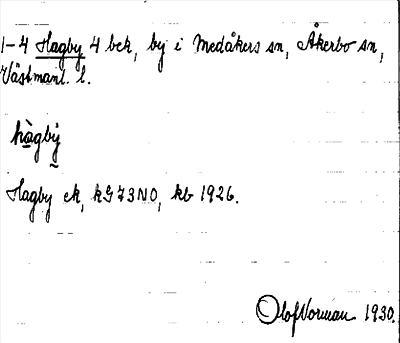 1-4 Hagby 4 bck, by i Medåkers sn, Åkerbo sn,
Västmanl. l.
hàgby̆
Hagby ek, k G 73 NO, kb 1926.
Olof Norman 1930.